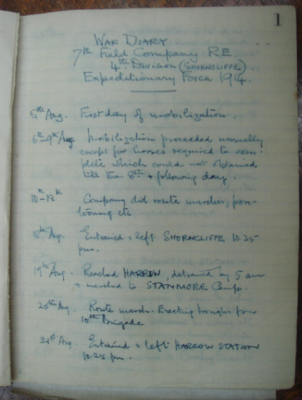 1
WAR DIARY
7th Field Company R.E
4th Division (SHORNCLIFFE)
Expeditionary Force 1914.
5th Aug. First day of mobilization.
6th-9th Aug Mobilization proceeded normally
except for horses required to com-
plete which could not obtained
till the 8th & following day.
10-17th Company did route marches, pon-
tooning etc
18th Aug. Entrained & left SHORNCLIFFE 10.25
pm.
19th Aug. Reached HARROW, detrained by 5 am
& marched to STANMORE Camp.
20th Aug. Route march. Erecting troughs for
10th Brigade
Aug. Entrained & left HARROW STATION
10.25 pm.